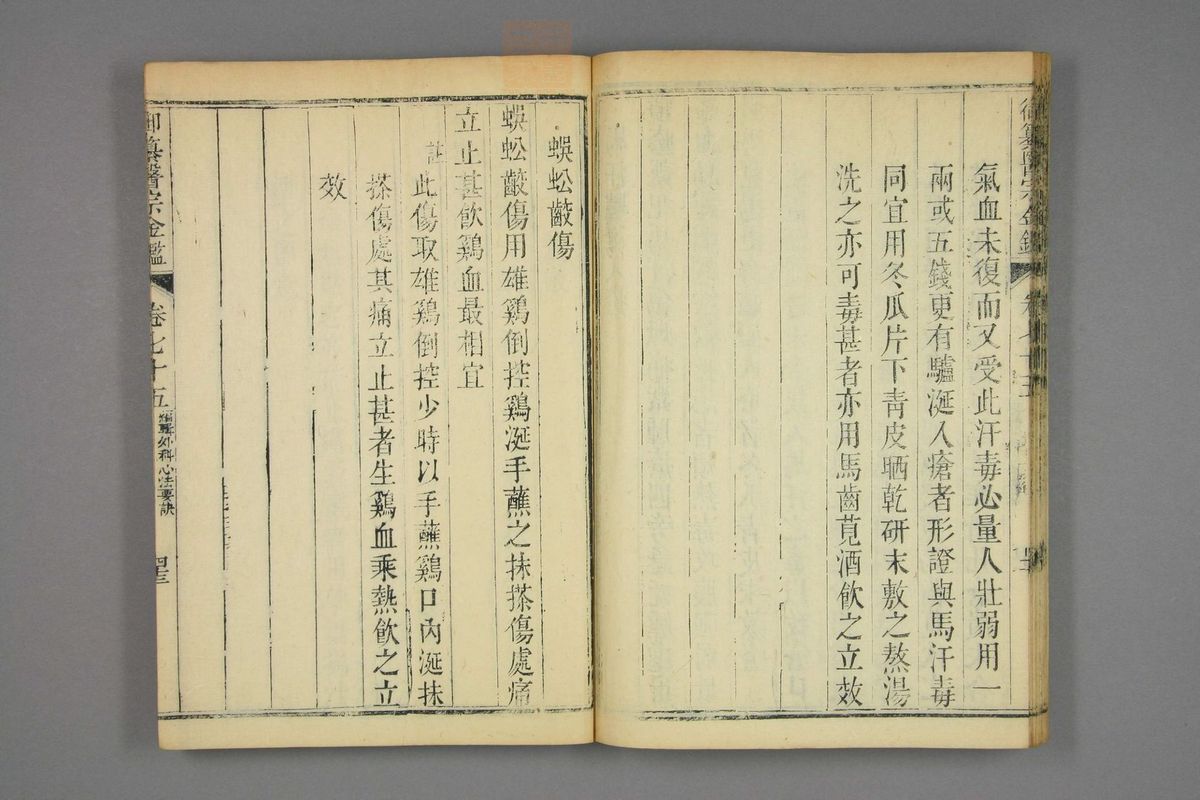 氣血未復而又受此汗毒必量人壯弱用一
兩或五錢更有驢涎入瘡者形證與馬汗毒
同宜用冬瓜片下青皮晒乾研末敷之熬湯
洗之亦可毒甚者亦用馬齒莧酒飲之立效
蜈蚣齩傷
蜈蚣齩傷用雄鷄倒控鷄涎手蘸之抹搽傷處痛
立止甚飲鷄血最相宜
註此傷取雄鷄倒控少時以手蘸鷄口內涎抹
搽傷處其痛立止甚者生鷄血乘熱飲之立
效
御纂醫宗金鑑 卷七十五 編輯外科心法要訣 四三